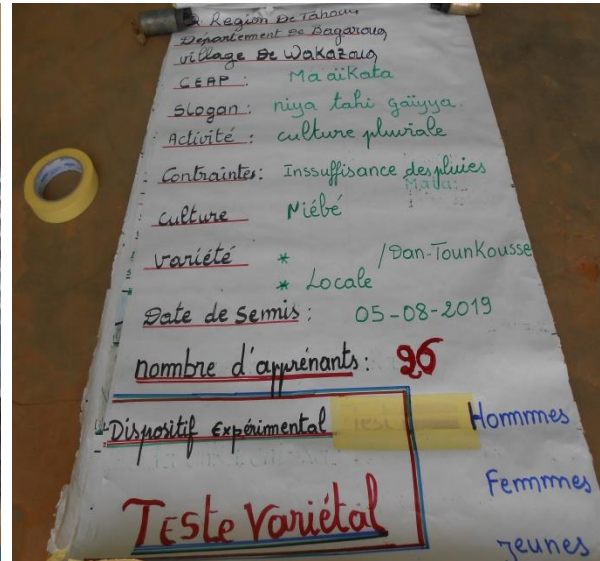 Region De Tahoua
Département De Bagaroua
village De Wakazoua
CEAP : Ma aikata
Slogan : niya tahi gaïyya.
Activité : culture pluviale
Contraintes : Inssuffisance des pluies
culture Niébé
variété * /Dan-Tounkousse
* Locale
Date de Semis : 05-08-2019
nombre d'apprénants : 26
Dispositif Expérimental
Hommes
Femmes
Teste Variétal
jeunes